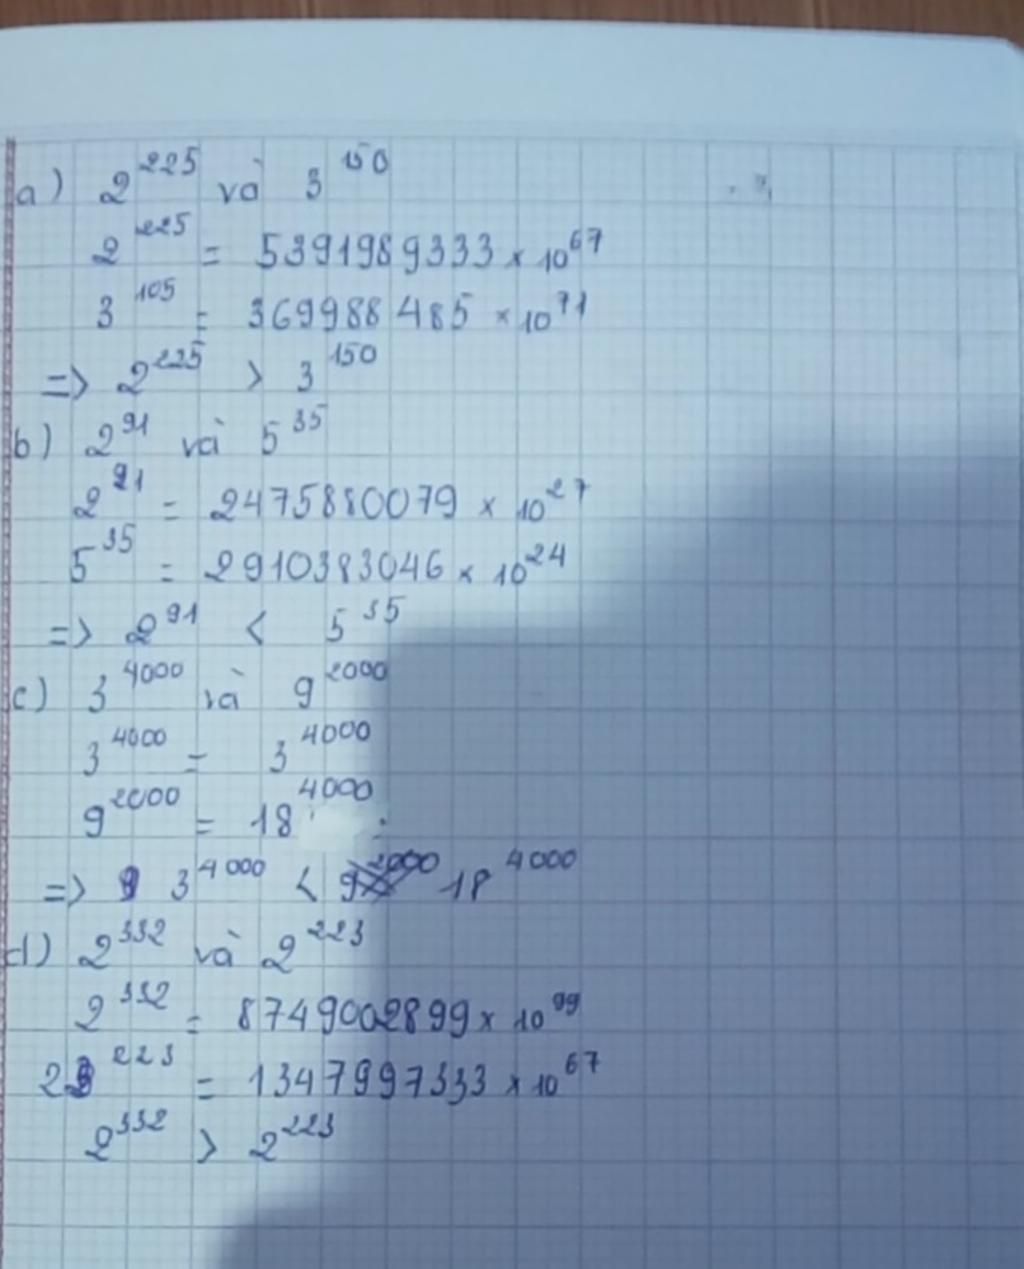 a) 2^225 và 3^150
2^225 = 5391989333 × 10^67
3^105 = 369988485 × 10^71
=> 2^225 > 3^150
b) 2^91 và 5^35
2^91 = 2475880079 × 10^27
5^35 = 2910383046 × 10^24
=> 2^91 < 5^35
c) 3^4000 và 9^2000
3^4000 = 3^4000
9^2000 = 18^4000
=> 3^4000 < 18^4000
d) 2^332 và 2^223
2^332 = 8749002899 × 10^99
2^223 = 1347997333 × 10^67
2^332 > 2^223